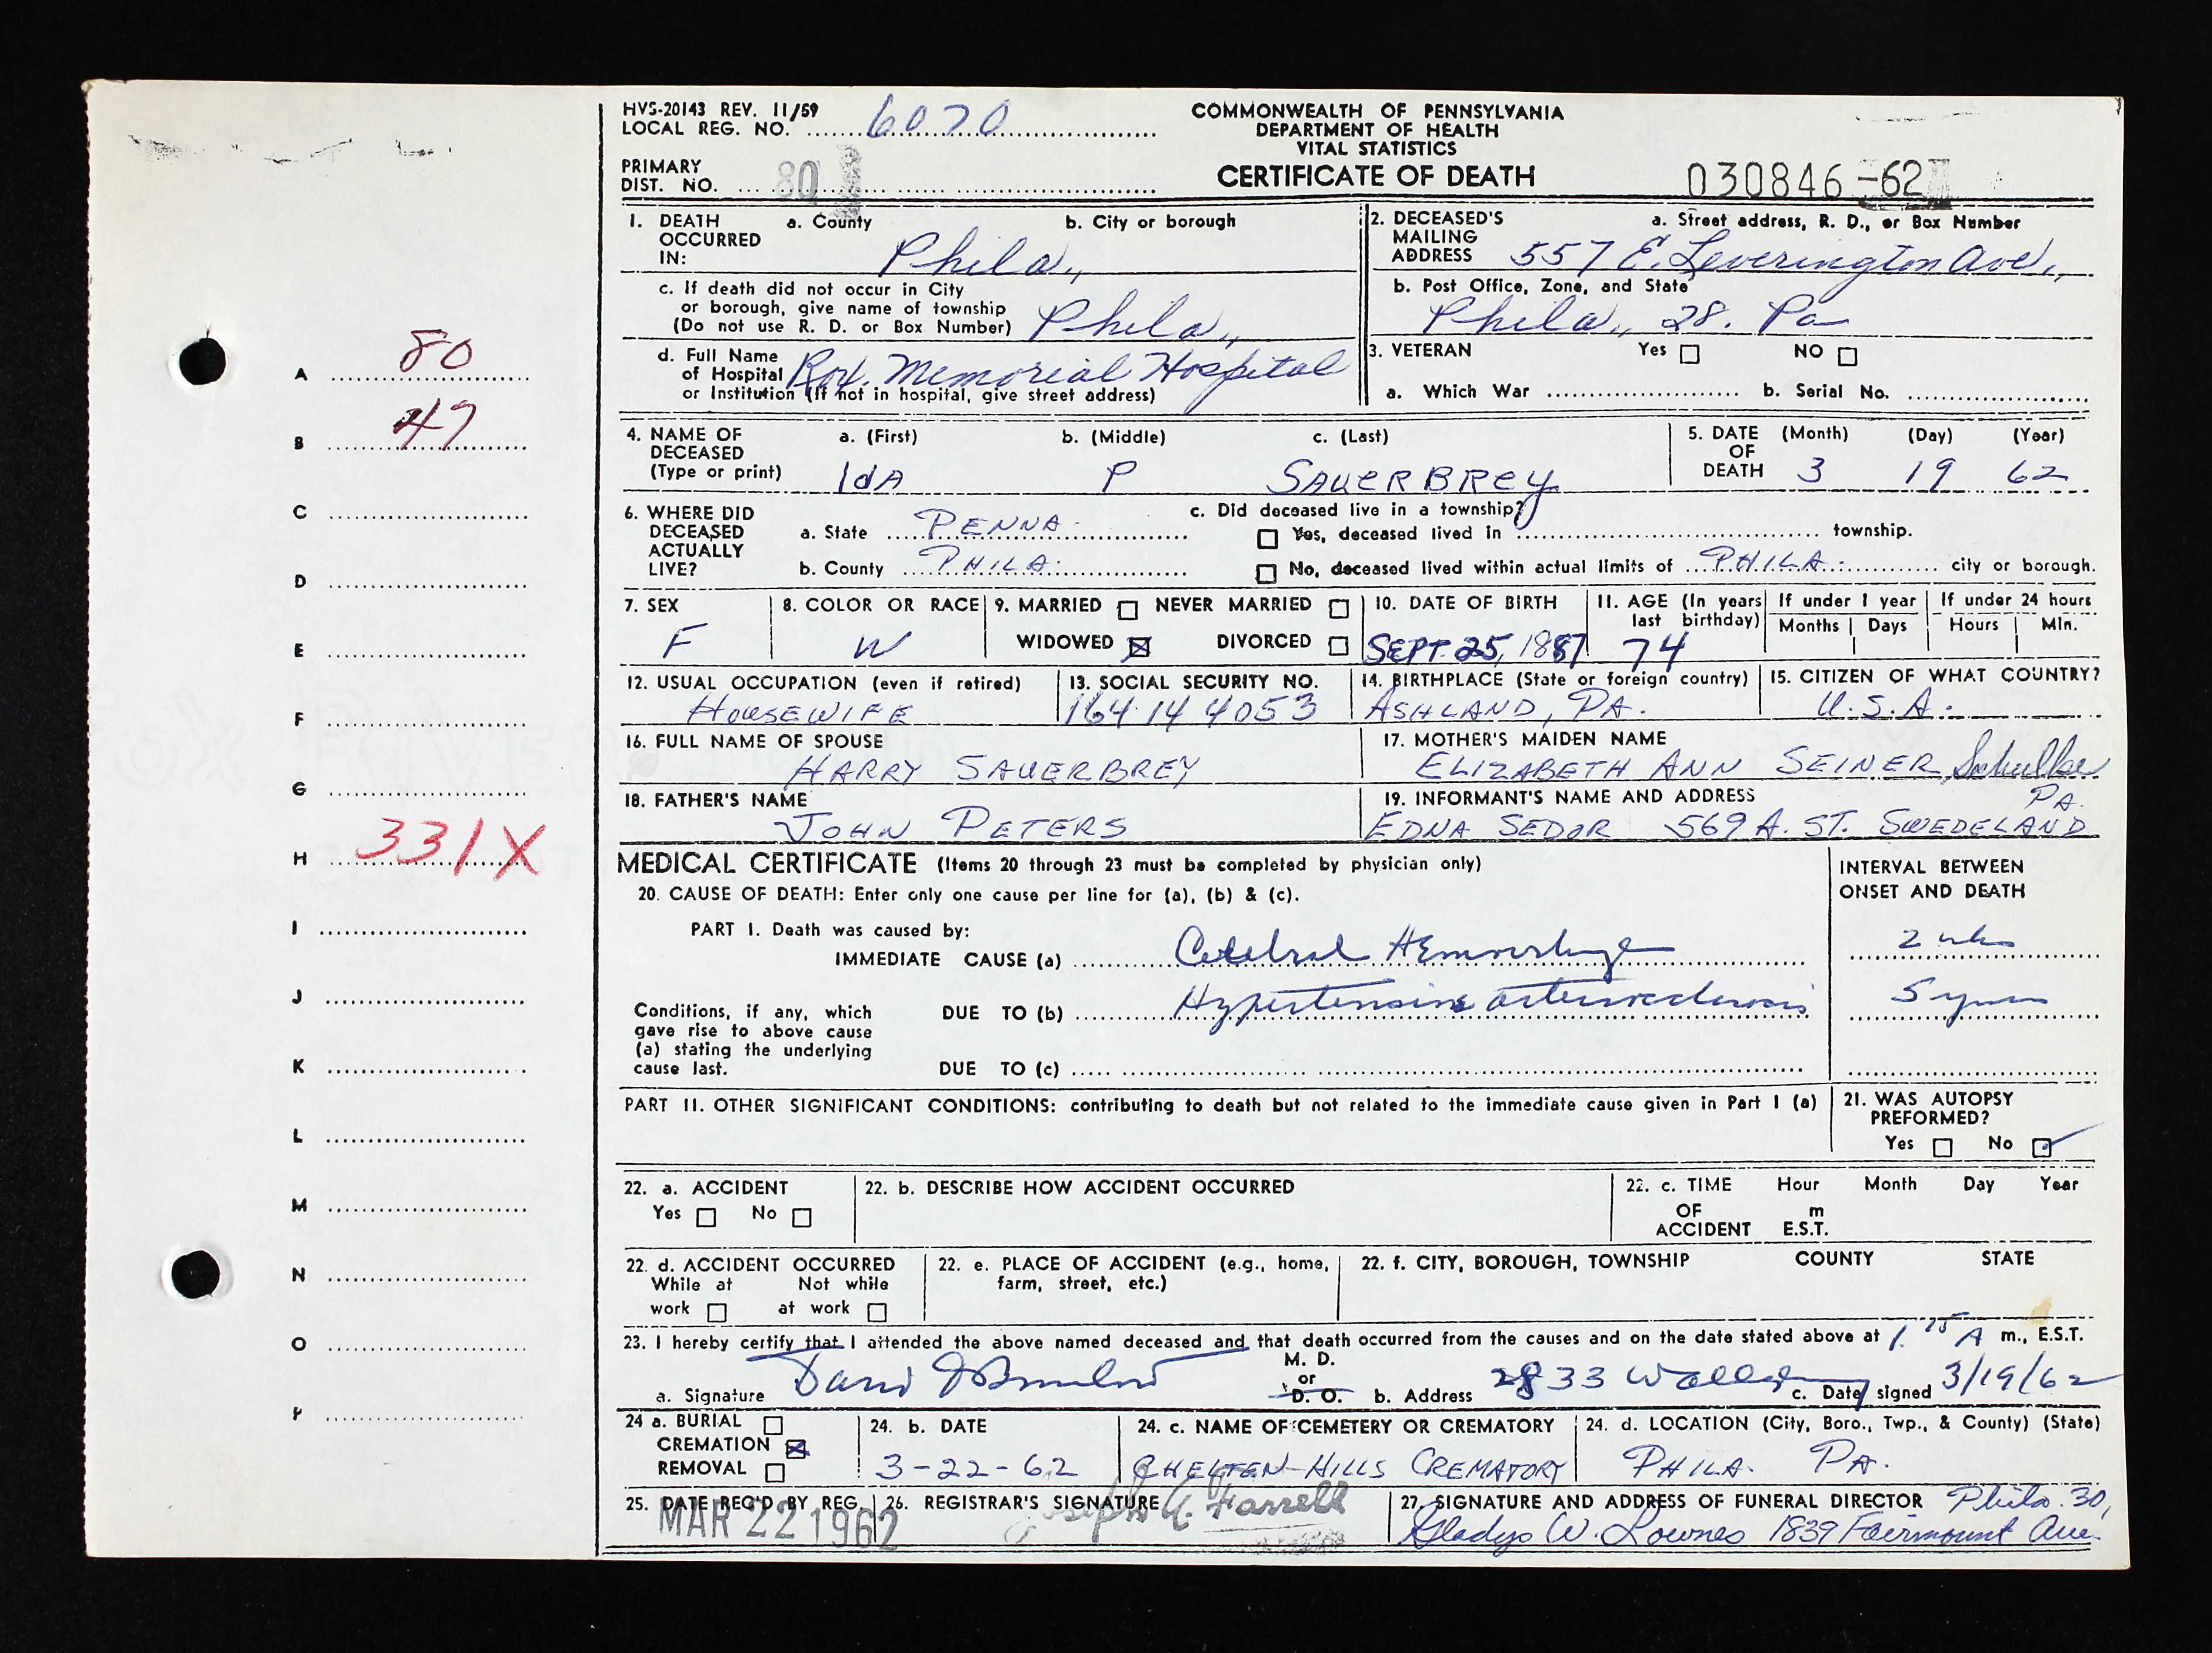 HVS-20143 REV. 11/59
LOCAL REG. NO. 6070
COMMONWEALTH OF PENNSYLVANIA
DEPARTMENT OF HEALTH
VITAL STATISTICS
CERTIFICATE OF DEATH
PRIMARY
DIST. NO. 801
030846-62
1. DEATH OCCURRED IN: a. County b. City or borough
Phila,,
c. If death did not occur in City
or borough, give name of township
(Do not use R. D. or Box Number) Phila,,
d. Full Name
of Hospital Rox. Memorial Hospital
or Institution (If not in hospital, give street address)
2. DECEASED'S MAILING ADDRESS a. Street address, R. D., or Box Number
557 E. Leverington Ave,
b. Post Office, Zone, and State
Phila,, 28. Pa
3. VETERAN Yes NO
a. Which War b. Serial No.
4. NAME OF DECEASED (Type or print) a. (First) b. (Middle) c. (Last)
IdA P SAUERBREY
5. DATE OF DEATH (Month) (Day) (Year)
3 19 62
6. WHERE DID DECEASED ACTUALLY LIVE?
a. State PENNA.
b. County PHILA.
c. Did deceased live in a township?
Yes, deceased lived in township.
No, deceased lived within actual limits of PHILA. city or borough.
7. SEX
F
8. COLOR OR RACE
W
9. MARRIED NEVER MARRIED
WIDOWED DIVORCED
10. DATE OF BIRTH
SEPT. 25, 1887
11. AGE (In years last birthday)
74
If under 1 year
Months Days
If under 24 hours
Hours Min.
12. USUAL OCCUPATION (even if retired)
HOUSEWIFE
13. SOCIAL SECURITY NO.
164 14 4053
14. BIRTHPLACE (State or foreign country)
ASHLAND, PA.
15. CITIZEN OF WHAT COUNTRY?
U.S.A.
16. FULL NAME OF SPOUSE
HARRY SAUERBREY
17. MOTHER'S MAIDEN NAME
ELIZABETH ANN SEINER
18. FATHER'S NAME
JOHN PETERS
19. INFORMANT'S NAME AND ADDRESS PA.
EDNA SEDOR 569 A. ST. SWEDELAND
MEDICAL CERTIFICATE (Items 20 through 23 must be completed by physician only)
20. CAUSE OF DEATH: Enter only one cause per line for (a), (b) & (c).
INTERVAL BETWEEN
ONSET AND DEATH
PART I. Death was caused by:
IMMEDIATE CAUSE (a) Cerebral Hemorrhage 2 wks
Conditions, if any, which
gave rise to above cause
(a) stating the underlying
cause last.
DUE TO (b) Hypertensive arteriosclerosis 5 years
DUE TO (c)
PART II. OTHER SIGNIFICANT CONDITIONS: contributing to death but not related to the immediate cause given in Part I (a)
21. WAS AUTOPSY
PREFORMED?
Yes No
22. a. ACCIDENT
Yes No
22. b. DESCRIBE HOW ACCIDENT OCCURRED
22. c. TIME OF ACCIDENT Hour Month Day Year
m
E.S.T.
22. d. ACCIDENT OCCURRED
While at Not while
work at work
22. e. PLACE OF ACCIDENT (e.g., home,
farm, street, etc.)
22. f. CITY, BOROUGH, TOWNSHIP COUNTY STATE
23. I hereby certify that I attended the above named deceased and that death occurred from the causes and on the date stated above at A m., E.S.T.
a. Signature M. D. or D. O. b. Address 2833 c. Date signed 3/19/62
24 a. BURIAL
CREMATION
REMOVAL
24. b. DATE
3-22-62
24. c. NAME OF CEMETERY OR CREMATORY
CHELTEN-HILLS CREMATORY
24. d. LOCATION (City, Boro., Twp., & County) (State)
PHILA. PA.
25. DATE REC'D BY REG.
MAR 22 1962
26. REGISTRAR'S SIGNATURE
Farrell
27. SIGNATURE AND ADDRESS OF FUNERAL DIRECTOR Phila. 30,
Gladys W. Lownes 1839 Fairmount Ave.
A 80
B 47
C
D
E
F
G
H 331X
I
J
K
L
M
N
O
P